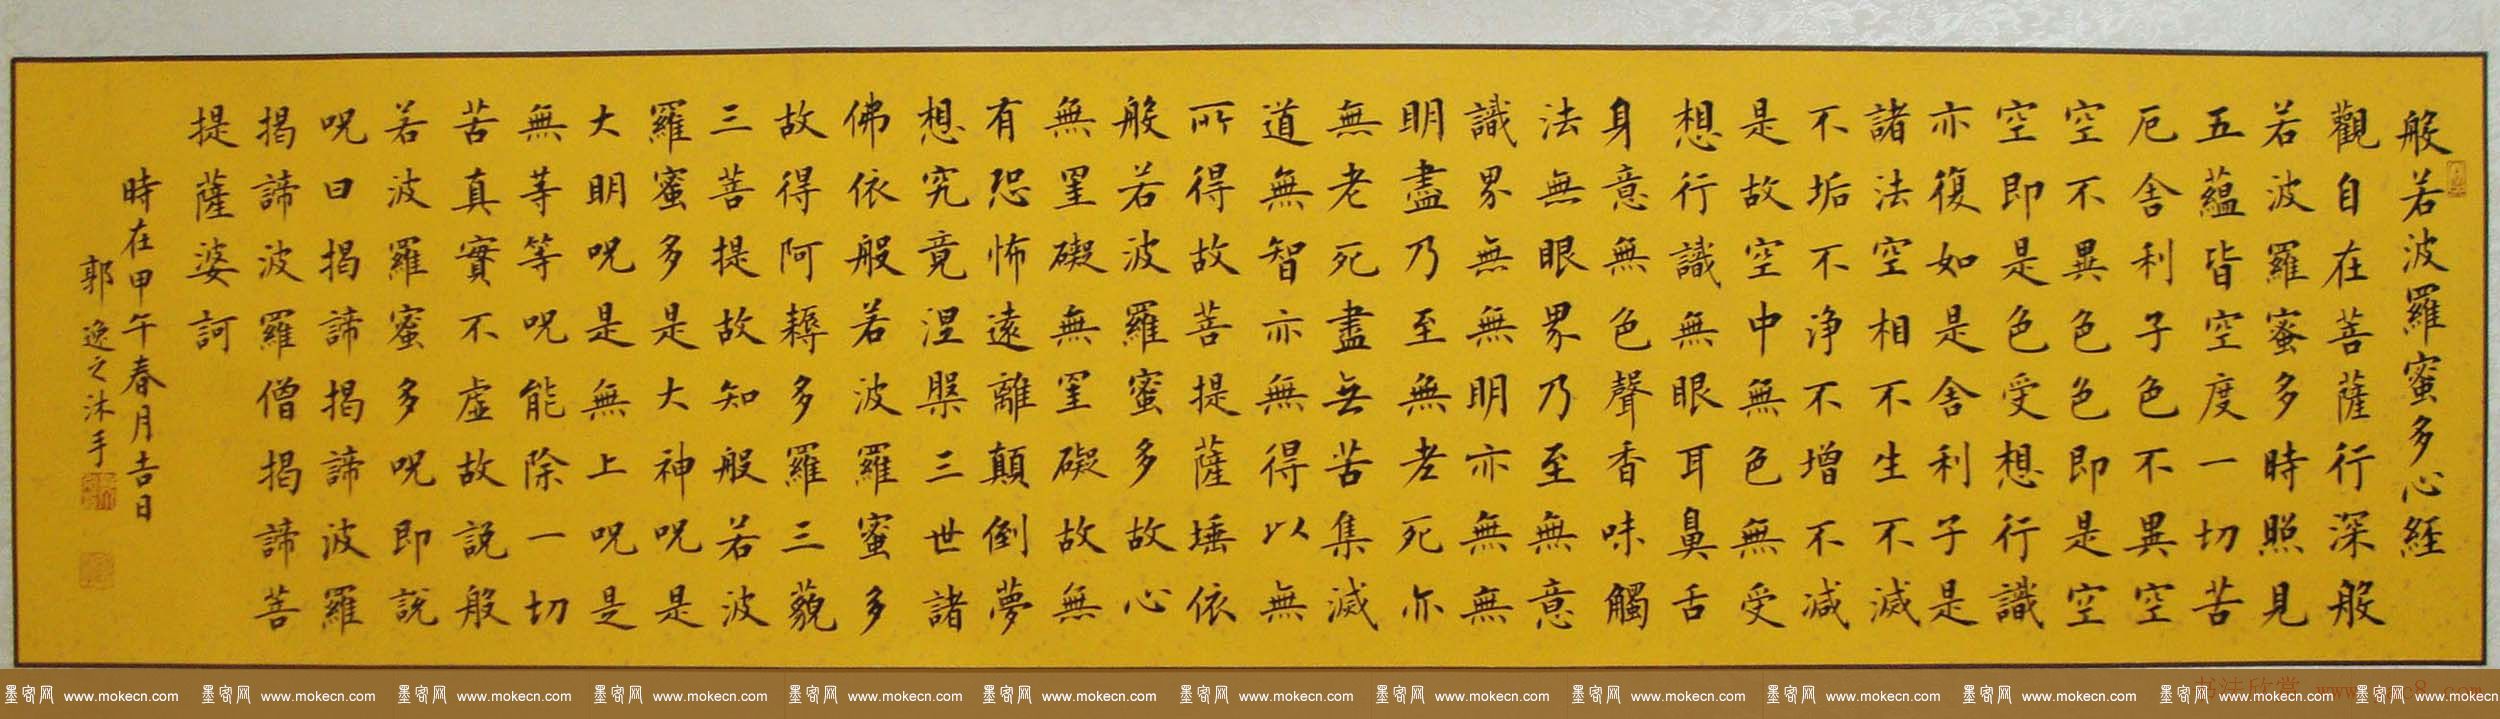 般若波羅蜜多心經
觀自在菩薩行深般
若波羅蜜多時照見
五蘊皆空度一切苦
厄舍利子色不異空
空不異色色即是空
空即是色受想行識
亦復如是舍利子是
諸法空相不生不滅
不垢不淨不增不減
是故空中無色無受
想行識無眼耳鼻舌
身意無色聲香味觸
法無眼界乃至無意
識界無無明亦無無
明盡乃至無老死亦
無老死盡无苦集滅
道無智亦無得以無
所得故菩提薩埵依
般若波羅蜜多故心
無罣礙無罣礙故無
有恐怖遠離顛倒夢
想究竟涅槃三世諸
佛依般若波羅蜜多
故得阿耨多羅三藐
三菩提故知般若波
羅蜜多是大神呪是
大明呪是無上呪是
無等等呪能除一切
苦真實不虛故說般
若波羅蜜多呪即說
呪曰揭諦揭諦波羅
揭諦波羅僧揭諦菩
提薩婆訶
時在甲午春月吉日
郭逸之沐手
墨客网 www.mokecn.com 墨客网 www.mokecn.com 墨客网 www.mokecn.com 墨客网 www.mokecn.com 墨客网 www.mokecn.com 墨客网 www.mokecn.com 墨客网 www.mokecn.com 墨客网 www.mokecn.com 墨客网 www.mokecn.com 墨客网 www.mokecn.com 墨客网 www.mokecn.com 墨客网 www.mokecn.com 墨客网 www.mokecn
书法欣赏